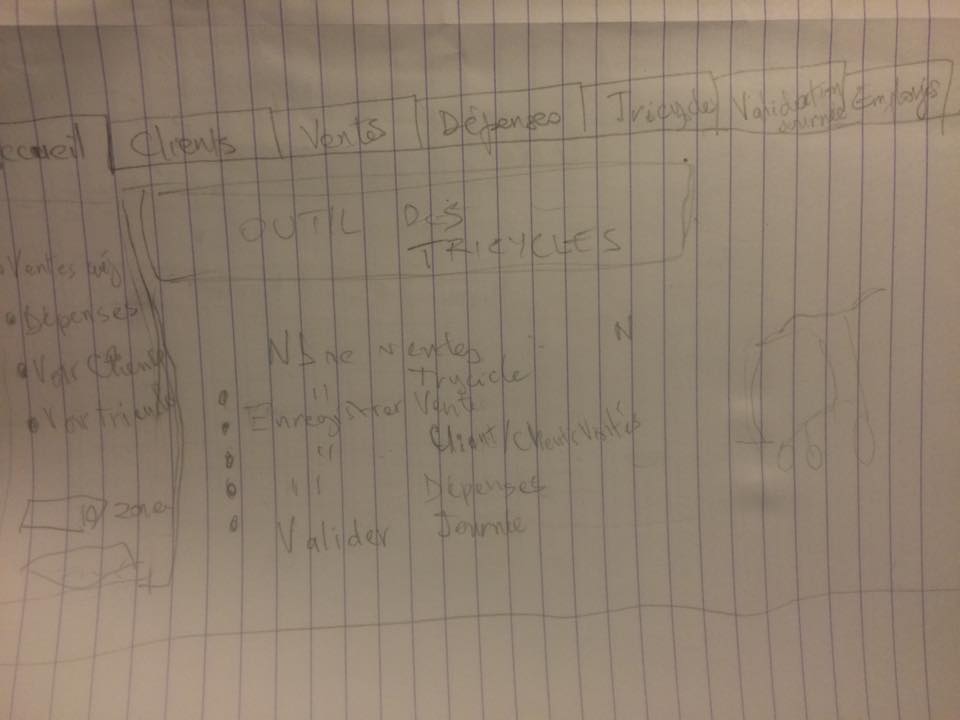 ccueil Clients Vents Dépenses Tricycles Validation Journée Employés
OUTIL DES
TRICYCLES
Ventes
Dépenses
Voir Clients
Voir
Nbre ventes N
" Trycicle
Enregistrer Vente
" Client/Clients Visités
" Dépenses
Valider Journée
Zone